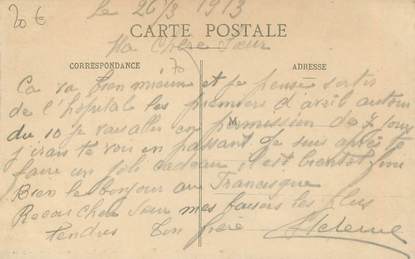 20 €
Le 26/3 1913
CARTE POSTALE
Ma Chère Sœur
CORRESPONDANCE
ADRESSE
Ca va bien mieux et je pense sortir
de l'hopitale les premiers d'avril autour
du 10 je vas aller en permission de 7 jour
M
j'irais te voir en passant je suis après te
faire un joli cadeau, c'est bientot fini
Bien le bonjour au Francisque
Recois chère Sœur mes baisers les plus
tendres Ton frère